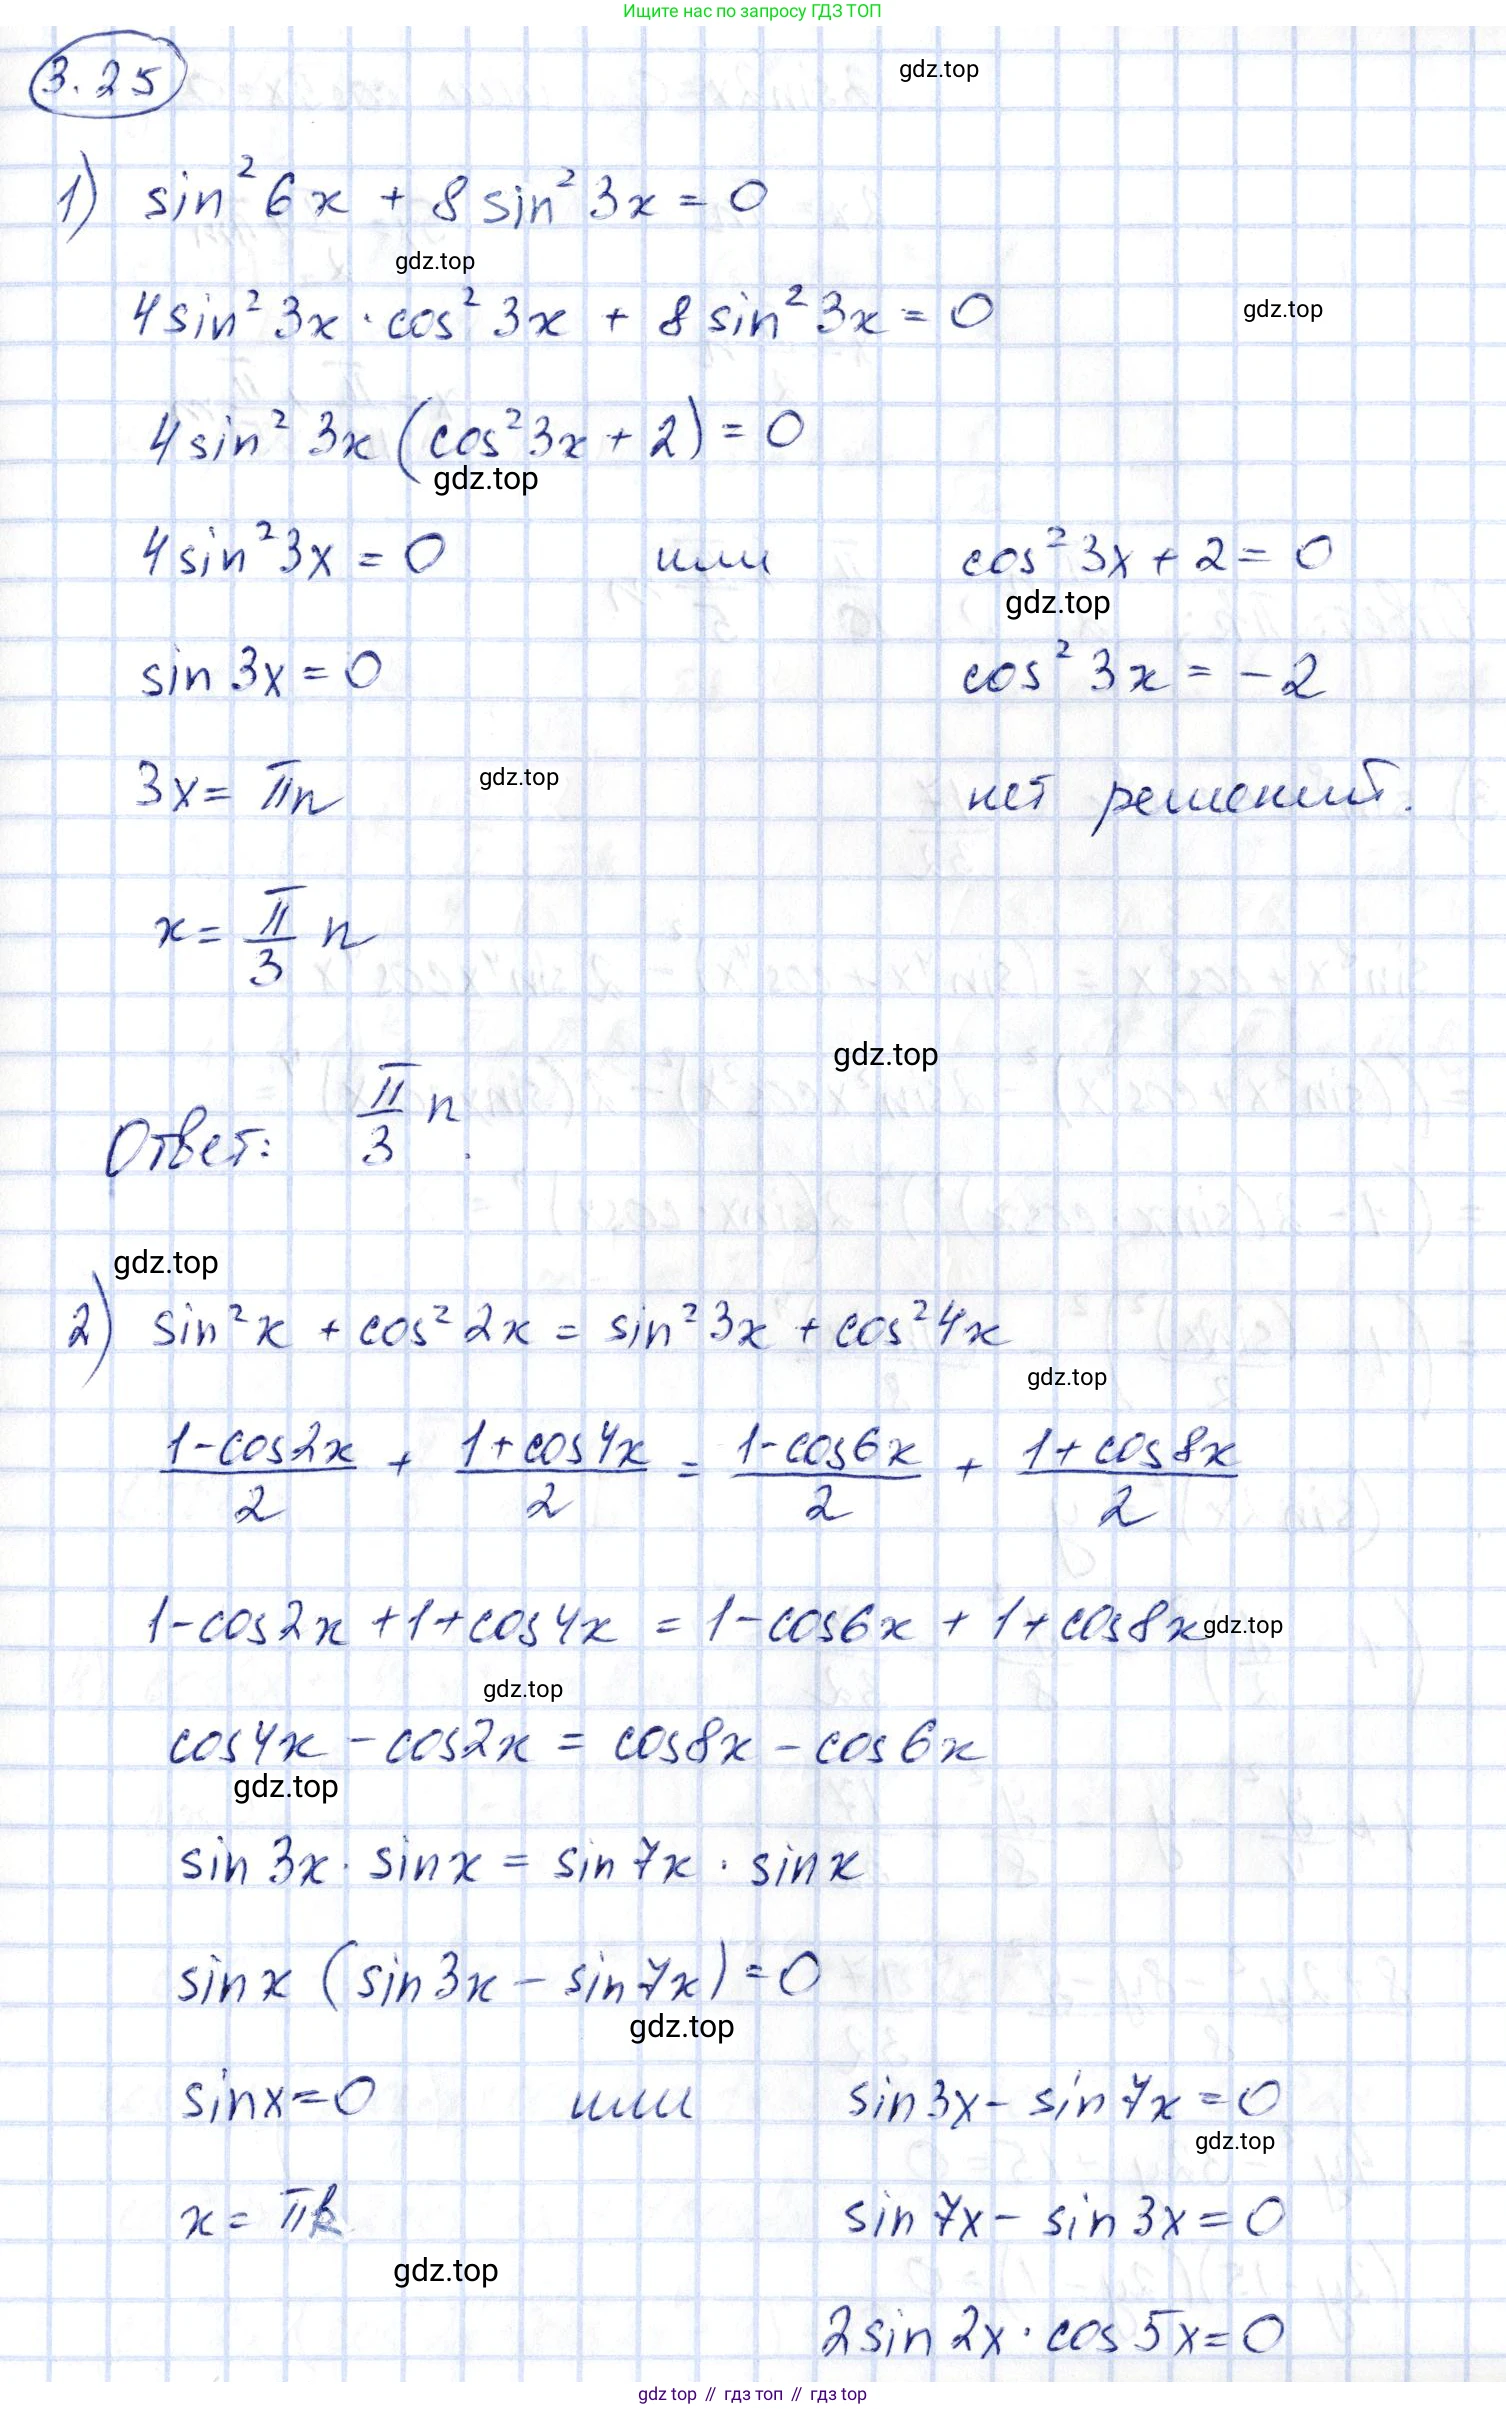 Ищите нас по запросу ГДЗ ТОП
3.25
gdz.top
1) sin² 6x + 8 sin² 3x = 0
gdz.top
4 sin² 3x · cos² 3x + 8 sin² 3x = 0
gdz.top
4 sin² 3x (cos² 3x + 2) = 0
gdz.top
4 sin² 3x = 0 или cos² 3x + 2 = 0
gdz.top
sin 3x = 0 cos² 3x = -2
3x = πn нет решений.
gdz.top
x = π/3 n
gdz.top
Ответ: π/3 n.
gdz.top
2) sin² x + cos² 2x = sin² 3x + cos² 4x
gdz.top
(1-cos2x)/2 + (1+cos4x)/2 = (1-cos6x)/2 + (1+cos8x)/2
1-cos2x + 1+cos4x = 1-cos6x + 1+cos8x
gdz.top
gdz.top
cos4x - cos2x = cos8x - cos6x
gdz.top
sin 3x · sin x = sin 7x · sin x
sin x (sin 3x - sin 7x) = 0
gdz.top
sin x = 0 или sin 3x - sin 7x = 0
gdz.top
x = πk sin 7x - sin 3x = 0
gdz.top
2 sin 2x · cos 5x = 0
gdz top // гдз топ // гдз top